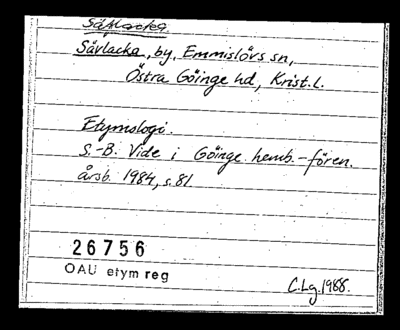 Sävlacka
Sävlacka, by, Emmislövs sn,
Östra Göinge hd, Krist. l.
Etymologi.
S.-B. Vide i Göinge hemb.-fören.
årsb. 1984, s. 81.
26756
OAU etym reg
C. Lg. 1988.